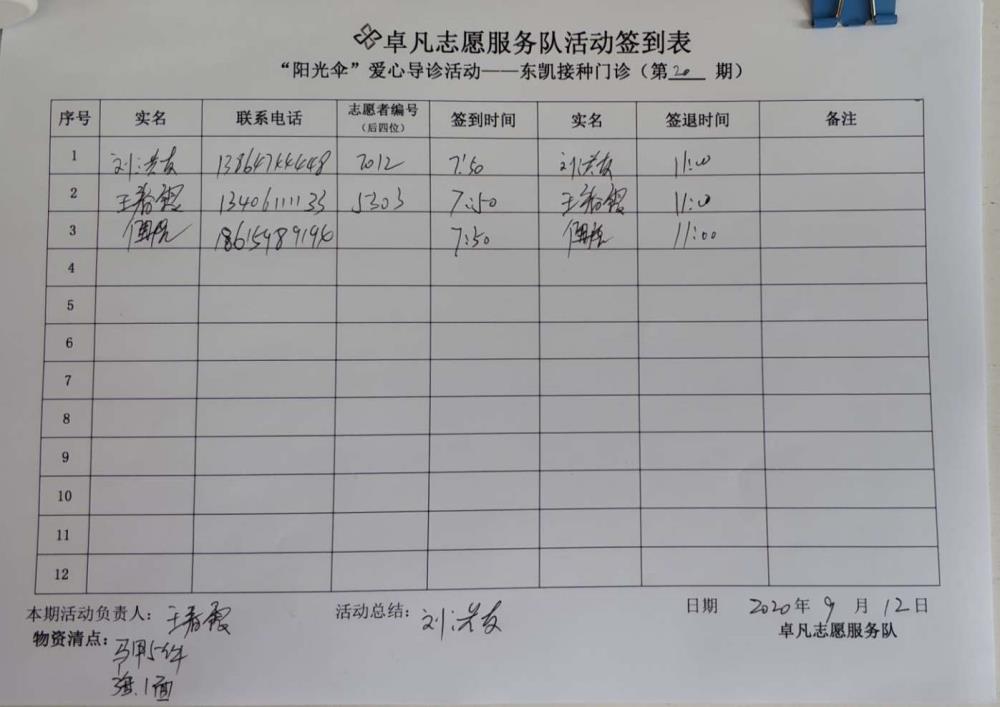 卓凡志愿服务队活动签到表
“阳光伞”爱心导诊活动——东凯接种门诊（第20 期）
序号 实名 联系电话 志愿者编号（后四位） 签到时间 实名 签退时间 备注
1 刘洪友 13864744448 7012 7:50 刘洪友 11:00
2 王春霞 13406111133 5303 7:50 王春霞 11:00
3 7:50 11:00
4
5
6
7
8
9
10
11
12
本期活动负责人：王春霞 活动总结：刘洪友 日期 2020年9月12日
物资清点： 卓凡志愿服务队
马甲5件
1面